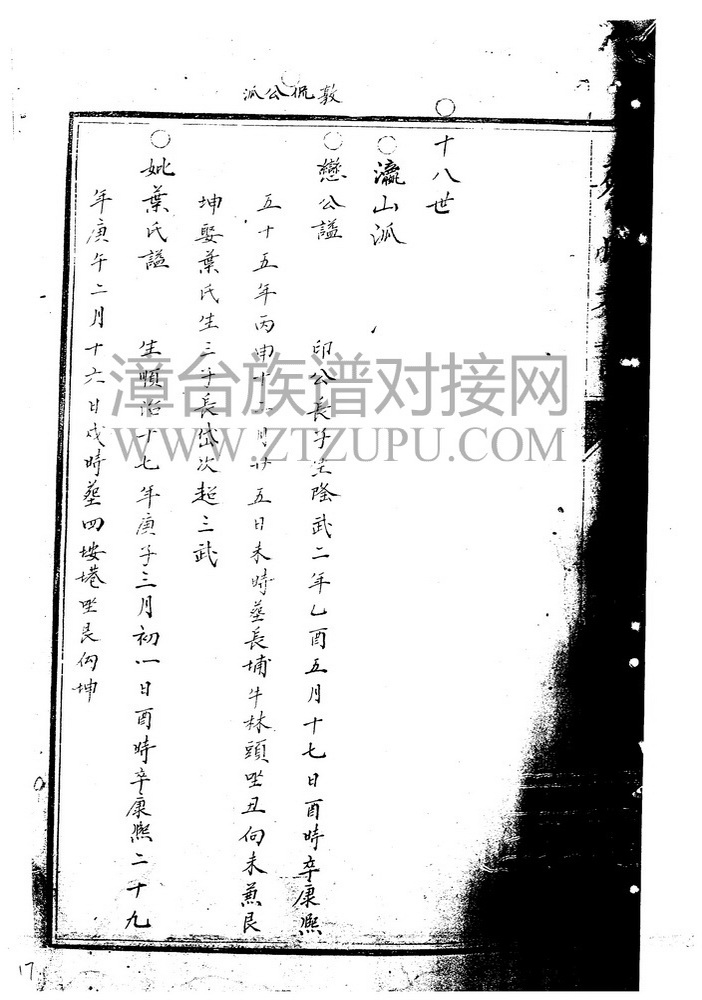 敦侃公派
○十八世
○瀛山派
○戀公謚
印公長子生隆武二年乙酉五月十七日酉時卒康熙
五十五年丙申十二月廿五日未時葬長埔牛林頭坐丑向未兼艮
坤娶葉氏生三子長岱次超三武
○妣葉氏謚
生順治十七年庚子三月初一日酉時卒康熙二十九
年庚午二月十六日戌時葬四坡塔坐艮向坤
漳台族谱对接网
WWW.ZTZUPU.COM
17